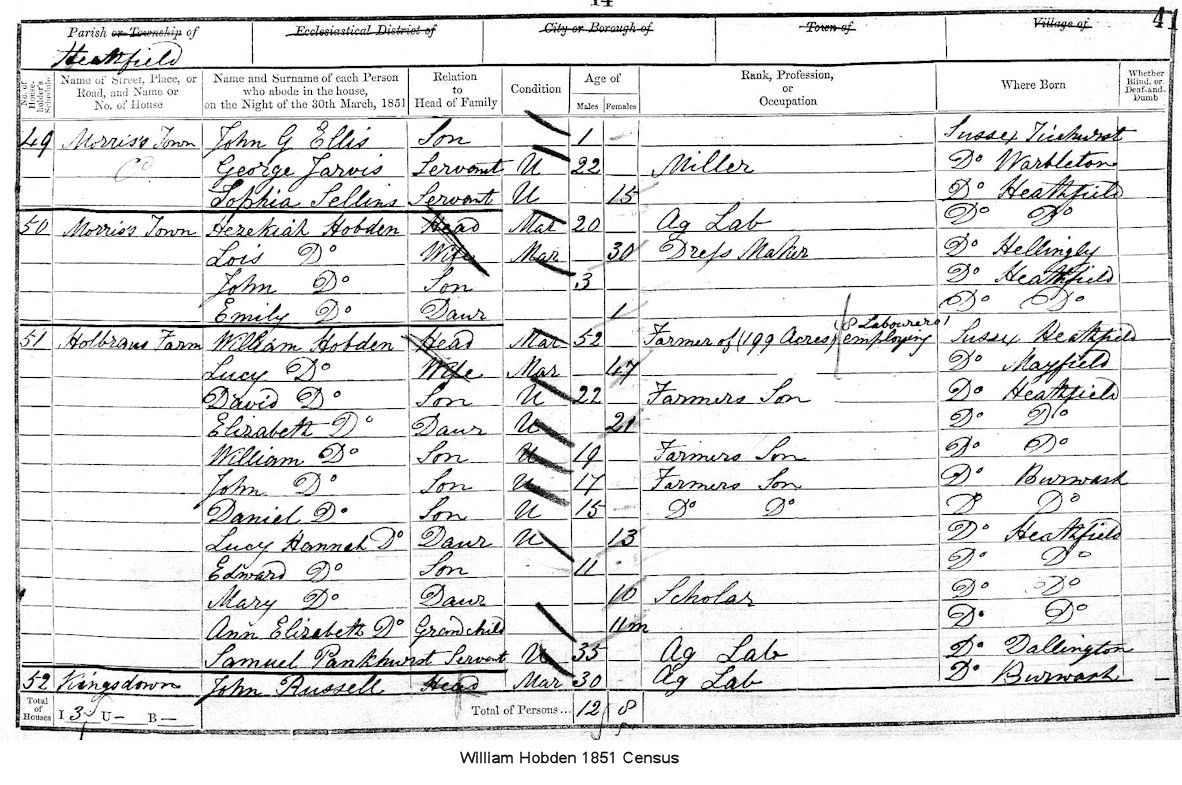 14
41
Parish or Township of Ecclesiastical District of City or Borough of Town of Village of
Heathfield
No. of House-holder's Schedule Name of Street, Place, or Road, and Name or No. of House Name and Surname of each Person who abode in the house, on the Night of the 30th March, 1851 Relation to Head of Family Condition Age of Males Females Rank, Profession, or Occupation Where Born Whether Blind, or Deaf-and-Dumb
49 Morris's Town John G Ellis Son 1 Sussex Ticehurst
George Jarvis Servant U 22 Miller Do Warbleton
Sophia Sellins Servant U 15 Do Heathfield
50 Morris's Town Hezekiah Hobden Head Mar 20 Ag Lab Do Do
Lois Do Wife Mar 30 Dress Maker Do Hellingly
John Do Son 3 Do Heathfield
Emily Do Daur 1 Do Do
51 Holbrans Farm William Hobden Head Mar 52 Farmer of (199 Acres) employing 8 Labourers Sussex Heathfield
Lucy Do Wife Mar 47 Do Mayfield
David Do Son U 22 Farmers Son Do Heathfield
Elizabeth Do Daur U 21 Do Do
William Do Son U 19 Farmers Son Do Do
John Do Son U 17 Farmers Son Do Burwash
Daniel Do Son U 15 Do Do Do Do
Lucy Hannah Do Daur U 13 Do Heathfield
Edward Do Son 11 Do Do
Mary Do Daur 10 Scholar Do Do
Ann Elizabeth Do Grandchild 11m Do Do
Samuel Pankhurst Servent U 35 Ag Lab Do Dallington
52 Kingsdown John Russell Head Mar 30 Ag Lab Do Burwash
Total of Houses I 3 U – B – Total of Persons... 12 8
William Hobden 1851 Census